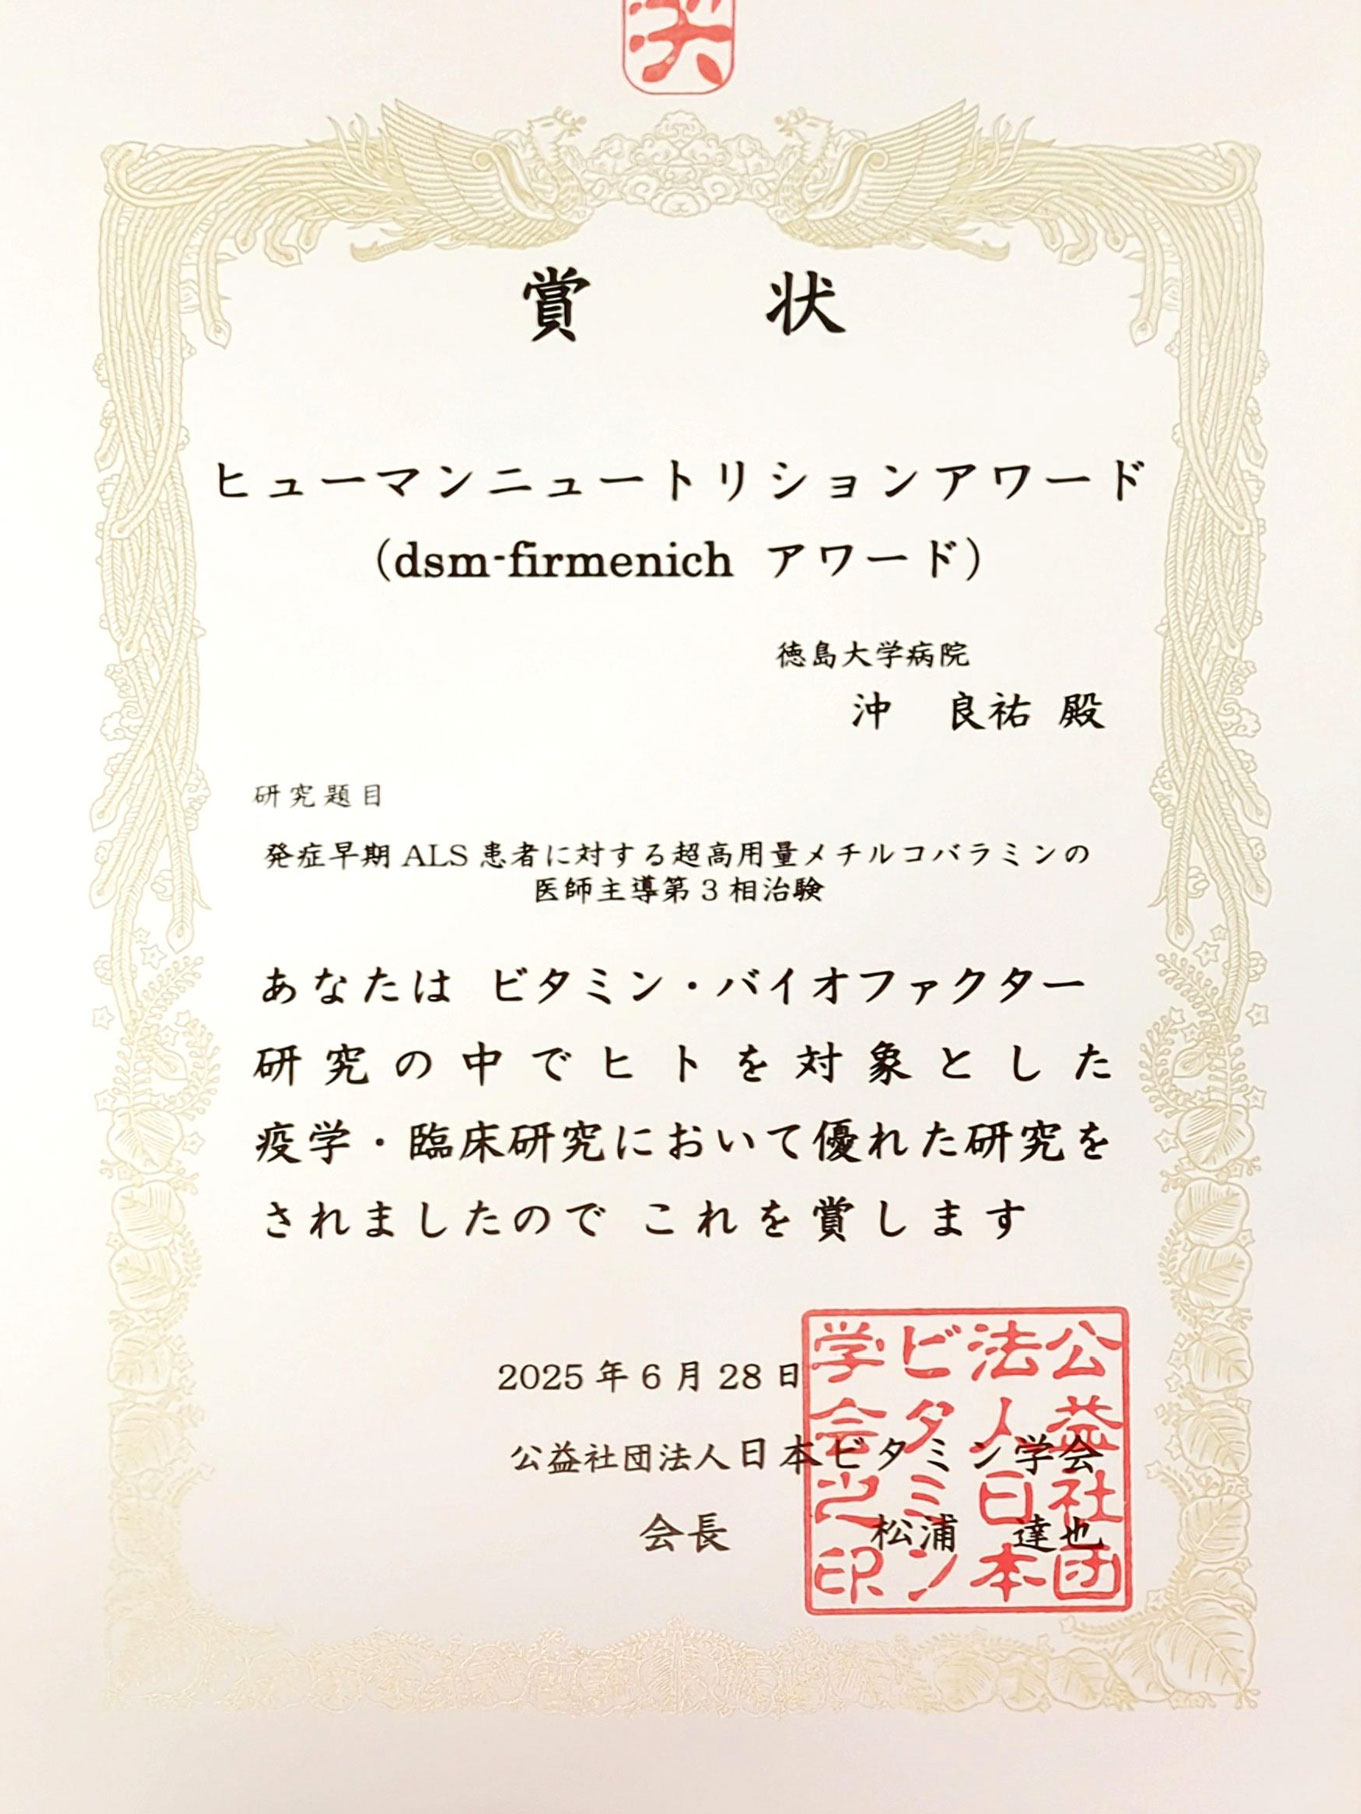 賞 状
ヒューマンニュートリションアワード
(dsm-firmenich アワード)
徳島大学病院
沖 良祐 殿
研究題目
発症早期 ALS 患者に対する超高用量メチルコバラミンの
医師主導第 3 相治験
あなたは ビタミン・バイオファクター
研究の中でヒトを対象とした
疫学・臨床研究において優れた研究を
されましたので これを賞します
2025 年 6 月 28 日
公益社団法人日本ビタミン学会
会長 松浦 達也
公益社団
法人日本
ビタミン
学会之印